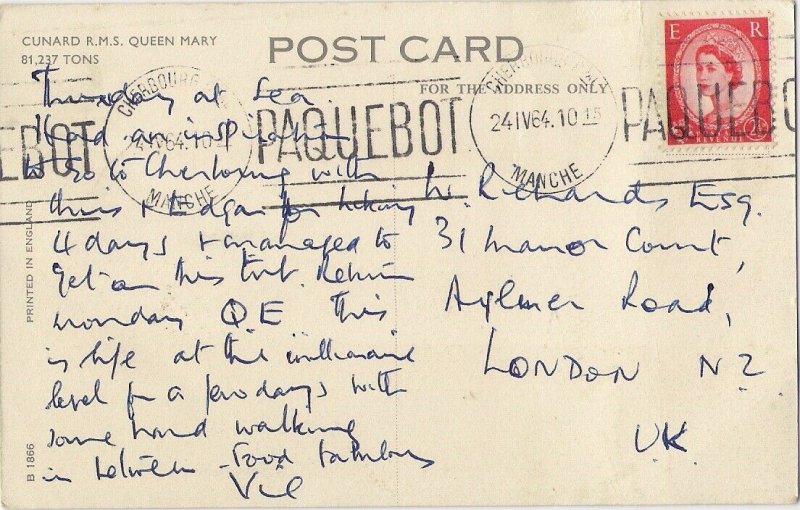 CUNARD R.M.S. QUEEN MARY
81,237 TONS
POST CARD
FOR THE ADDRESS ONLY
E R
2½
REVENUE
CHERBOURG
24 IV 64. 10 15
MANCHE
PAQUEBOT
CHERBOURG
24 IV 64. 10 15
MANCHE
PAQUEBOT
EBOT
Thursday at Sea
Had an inspiration
to go to Cherbourg with
this & Edgar for hiking
4 days & managed to
get on this trip. Return
monday Q.E This
is life at the millionaire
level for a few days with
some hard walking
in between - Food fabulous
Richards Esq.
31 Manor Court,
Aylmer Road,
LONDON N2
UK
PRINTED IN ENGLAND
B 1866